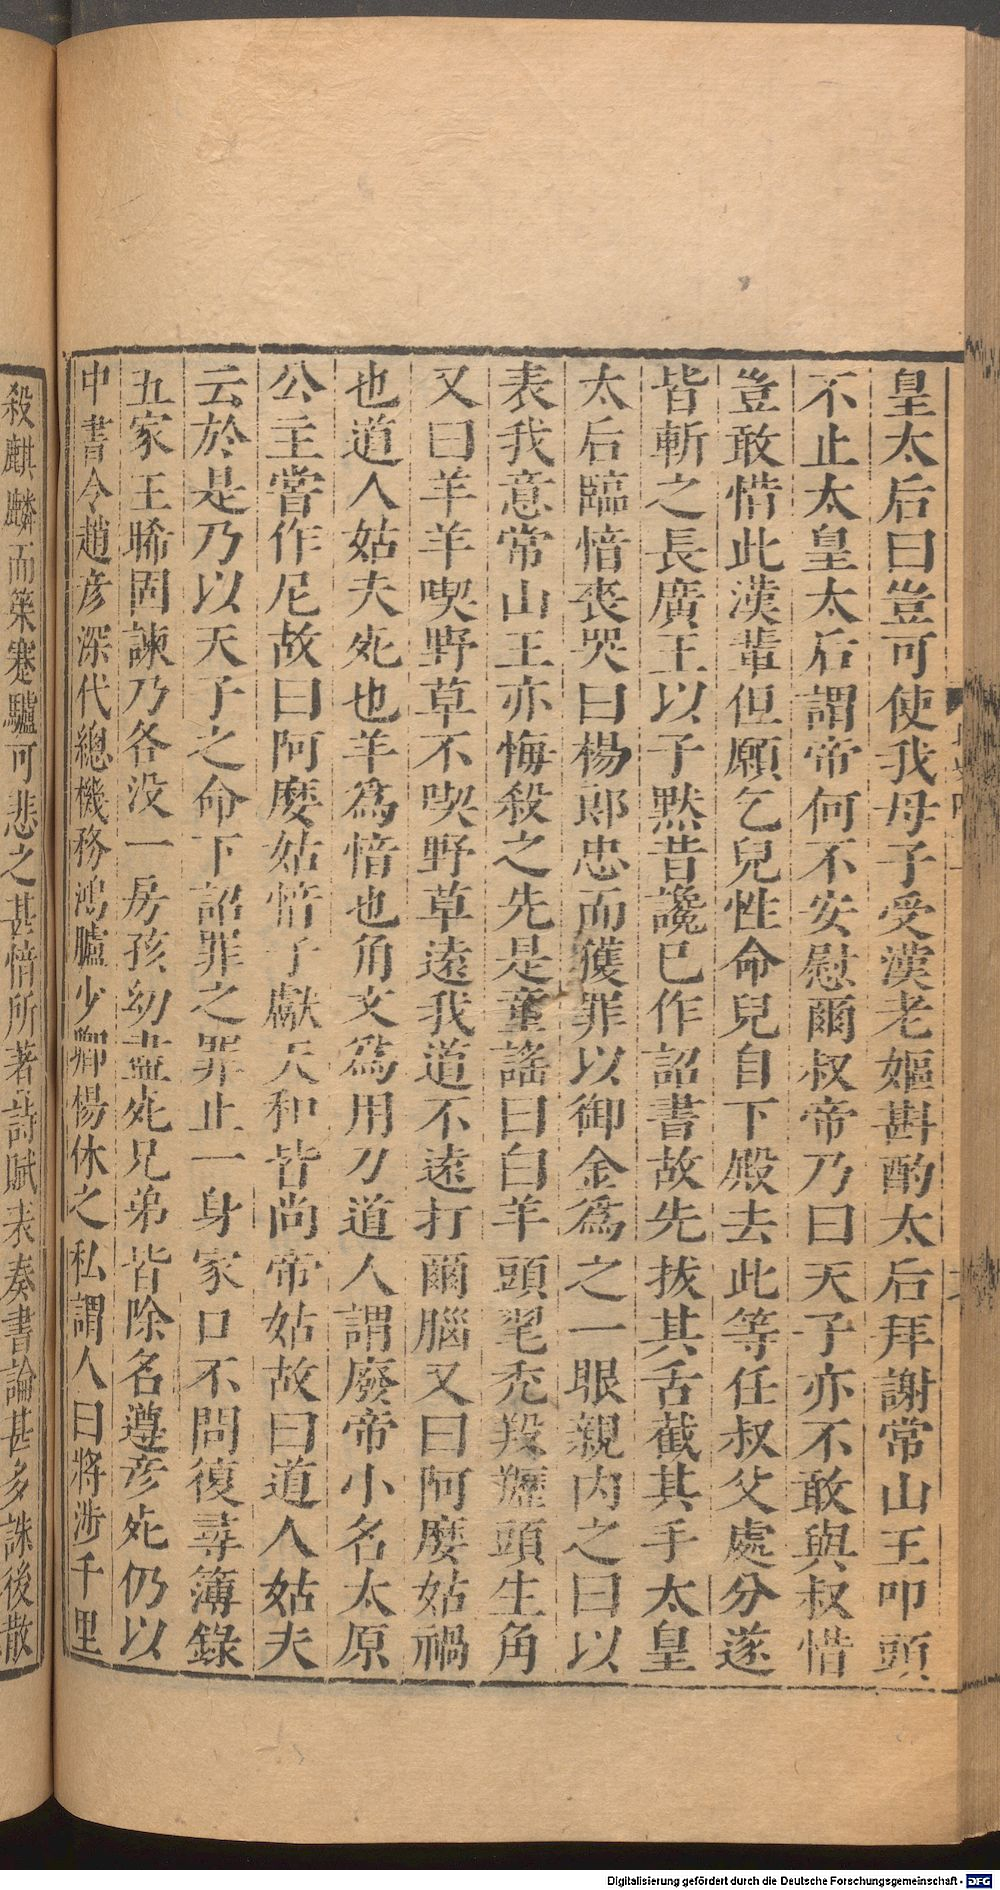 皇太后曰豈可使我母子受漢老嫗斟酌太后拜謝常山王叩頭
不止太皇太后謂帝何不安慰爾叔帝乃曰天子亦不敢與叔惜
豈敢惜此漢輩但願乞兒性命兒自下殿去此等任叔父處分遂
皆斬之長廣王以子黙昔讒已作詔書故先拔其舌截其手太皇
太后臨愔喪哭曰楊郎忠而獲罪以御金爲之一眼親內之曰以
表我意常山王亦悔殺之先是童謠曰白羊頭毣禿羖䍽頭生角
又曰羊羊喫野草不喫野草遠我道不遠打爾腦又曰阿麼姑禍
也道人姑夫死也羊爲愔也角文爲用刀道人謂廢帝小名太原
公主嘗作尼故曰阿麼姑愔子獻天和皆尚帝姑故曰道人姑夫
云於是乃以天子之命下詔罪之罪止一身家口不問復尋簿錄
五家王晞固諫乃各没一房孩幼盡死兄弟皆除名遵彦死仍以
中書令趙彦深代總機務鴻臚少卿楊休之私謂人曰將涉千里
殺麒麟而策蹇驢可悲之甚愔所著詩賦表奏書論甚多誅後散
Digitalisierung gefördert durch die Deutsche Forschungsgemeinschaft - DFG